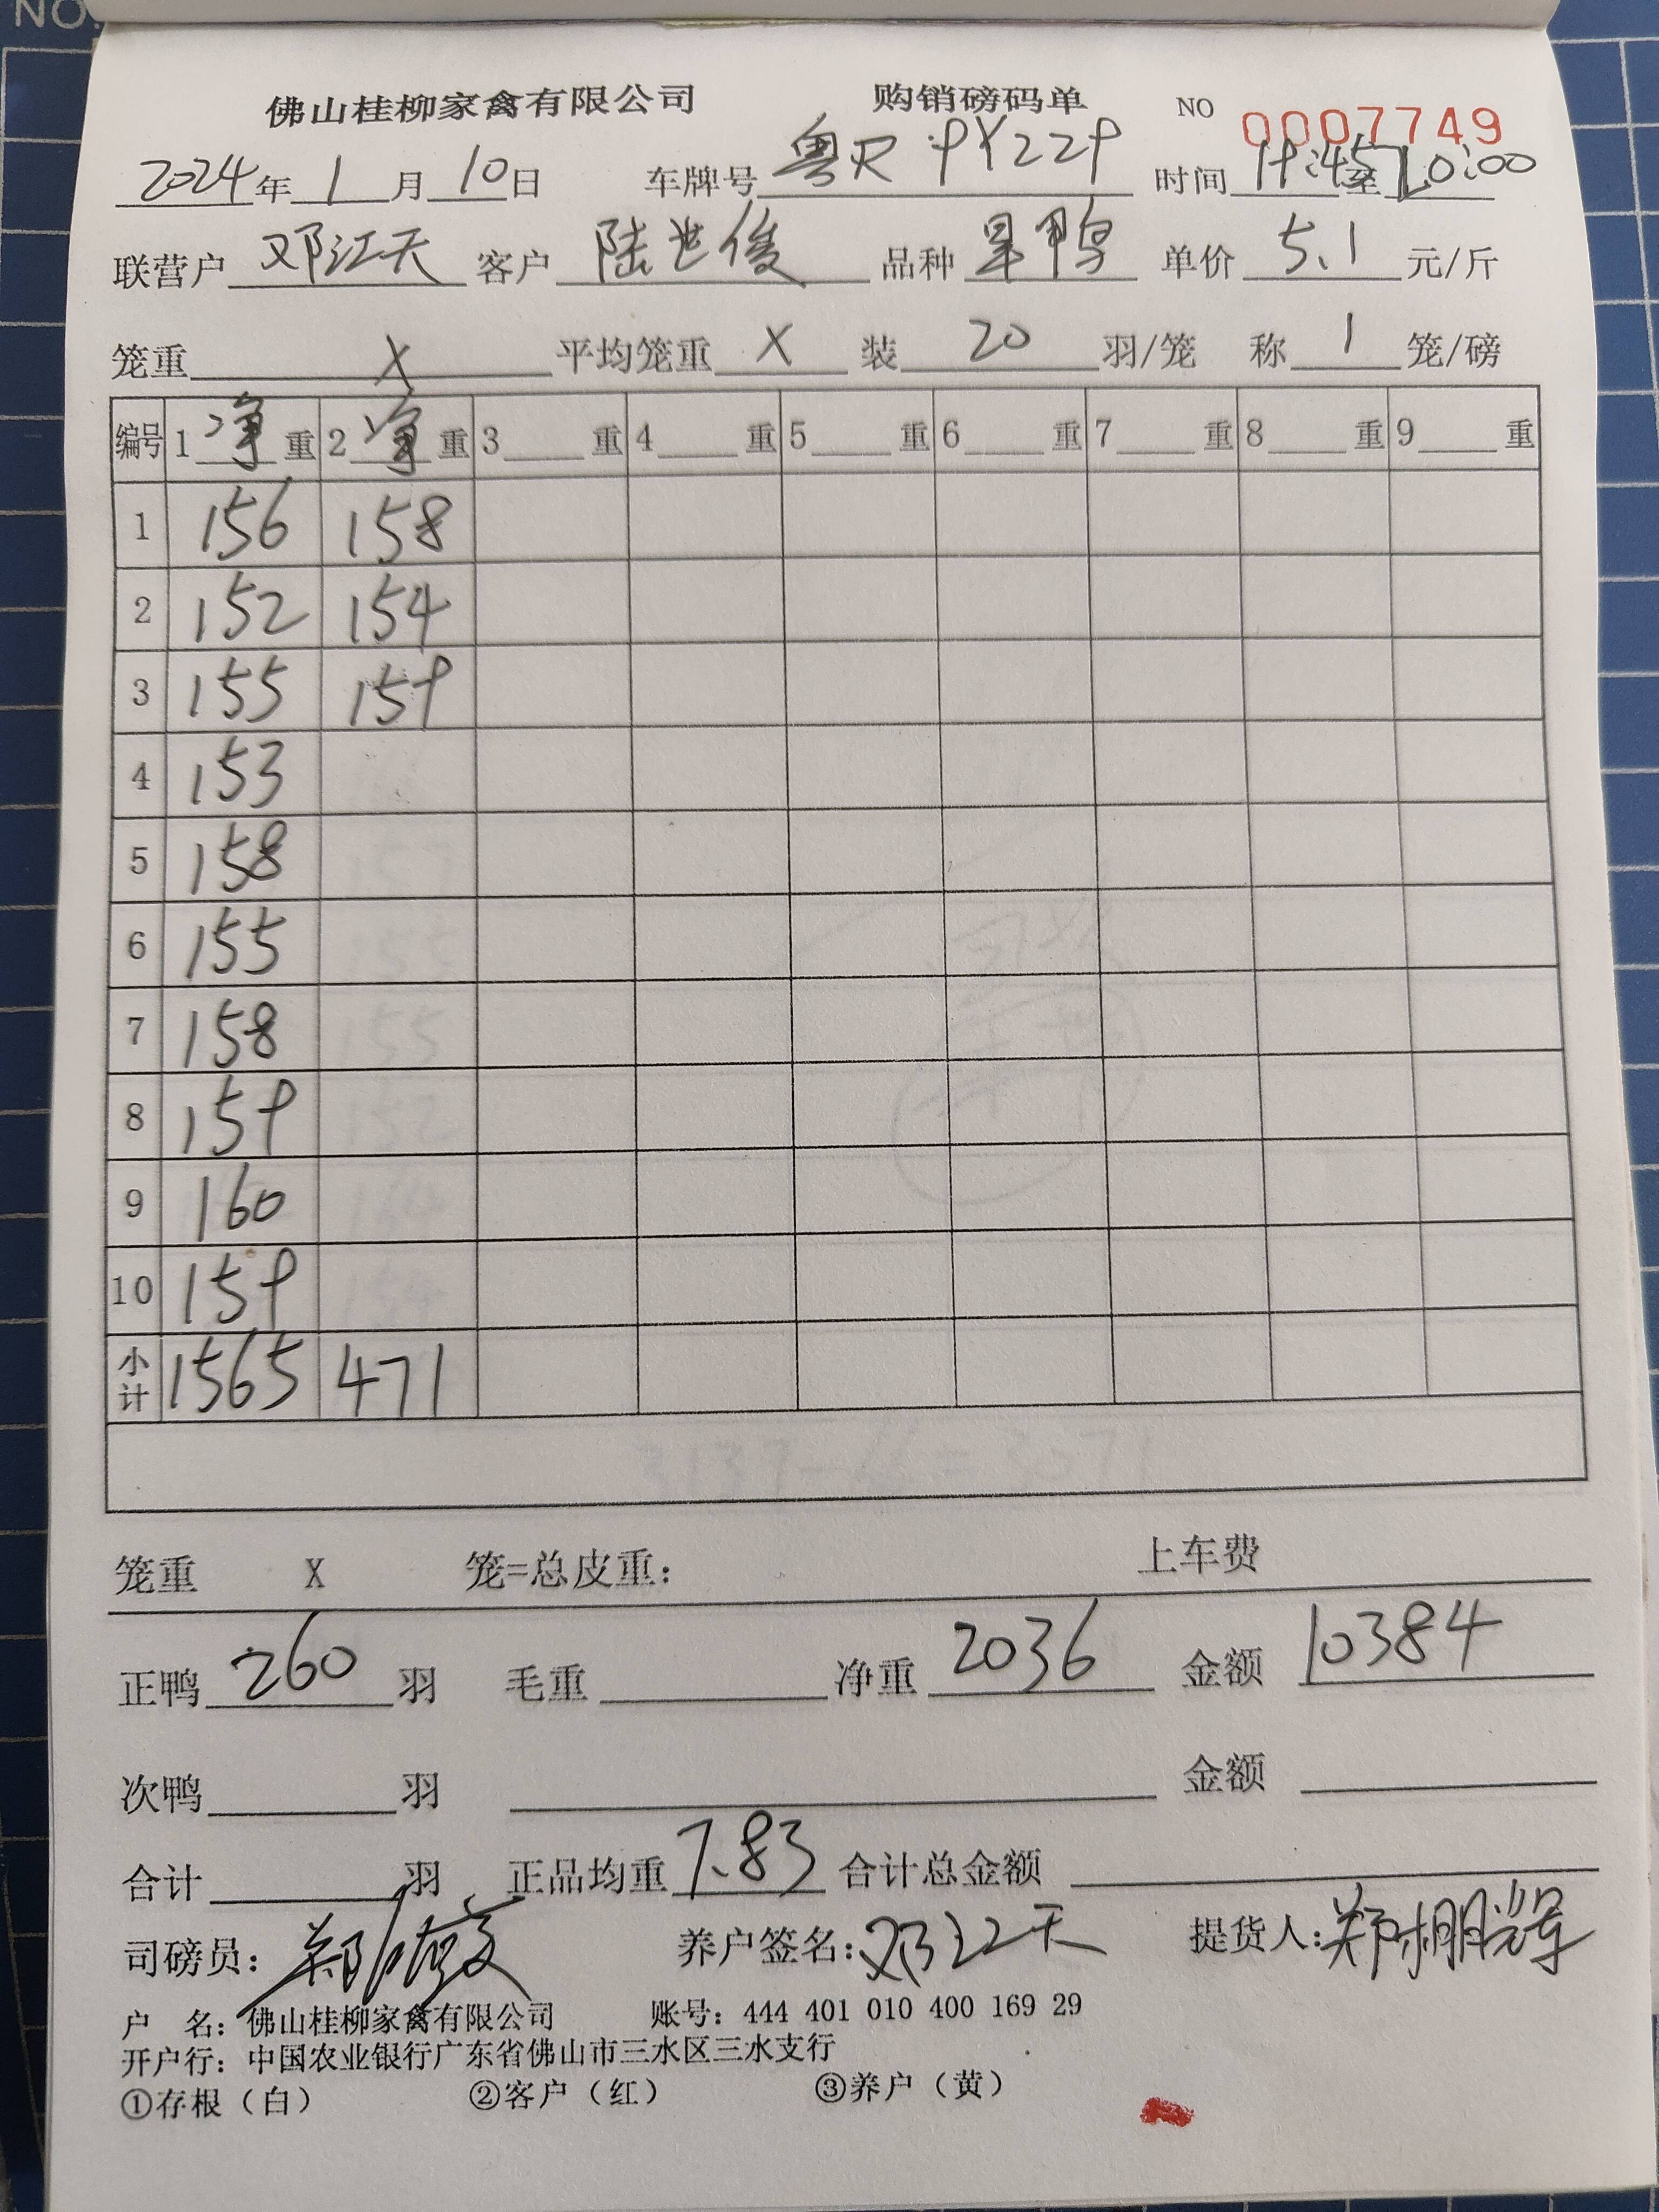 NO.
佛山桂柳家禽有限公司 购销磅码单 NO 0007749
2024年1月10日 车牌号 粤R·9Y229 时间 19:45至20:00
联营户 邓江天 客户 陆世俊 品种 旱鸭 单价 5.1 元/斤
笼重 X 平均笼重 X 装 20 羽/笼 称 1 笼/磅
编号 1 净 重 2 净 重 3 重 4 重 5 重 6 重 7 重 8 重 9 重
1 156 158
2 152 154
3 155 159
4 153
5 158
6 155
7 158
8 159
9 160
10 159
小计 1565 471
笼重 X 笼=总皮重: 上车费
正鸭 260 羽 毛重 净重 2036 金额 10384
次鸭 羽 金额
合计 羽 正品均重 7.83 合计总金额
司磅员: 养户签名: 邓江天 提货人: 郑棚辉
户 名: 佛山桂柳家禽有限公司 账号: 444 401 010 400 169 29
开户行: 中国农业银行广东省佛山市三水区三水支行
①存根（白） ②客户（红） ③养户（黄）